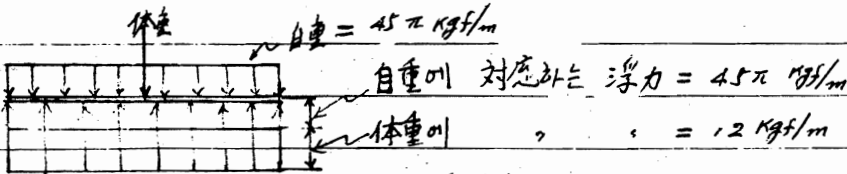 体重
自重 = 45π kgf/m
自重에 対応하는 浮力 = 45π kgf/m
体重에 〃 〃 = 12 kgf/m